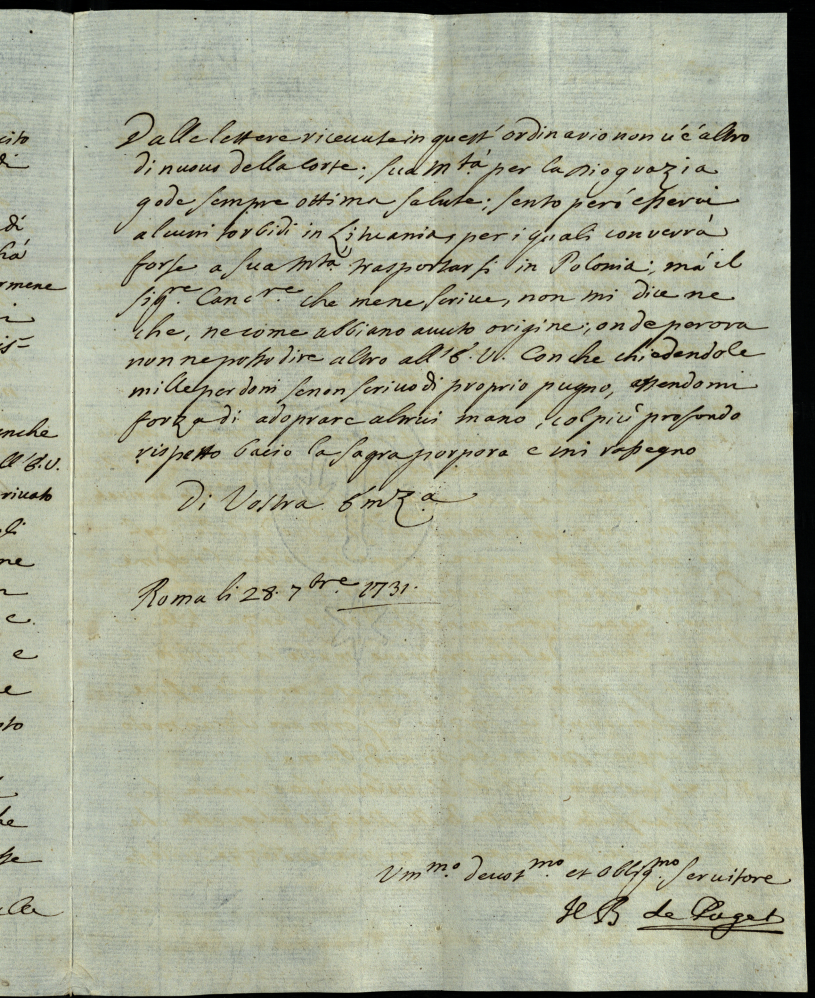 cito
di
di
hà
rmene
i
is=
anche
ll'E.V.
rivato
gli
ne
n
e.
e
e
sto
he
sse
alla
Dalle lettere riceuute in quest' ordinario non u'é altro
di nuouo della Corte; Sua M.tà per la Dio grazia
gode sempre ottima salute; sento peró esserui
alcuni torbidi in Lithuania, per i quali conuerrà
forse a Sua M.tà trasportarsi in Polonia; má il
sig.re Canc.re che mene scriue, non mi dice ne
che, ne come abbiano auuto origine; onde per ora
non ne posso dire altro all'E.V. Con che chiedendole
mille perdoni se non scriuo di proprio pugno, essendomi
forza di adoprare altrui mano, col piú profondo
rispetto bacio la Sagra porpora e mi rassegno
Di Vostra Emza
Roma li 28. 7bre 1731.
Um.mo deuot.mo et obblig.mo seruitore
de Puget